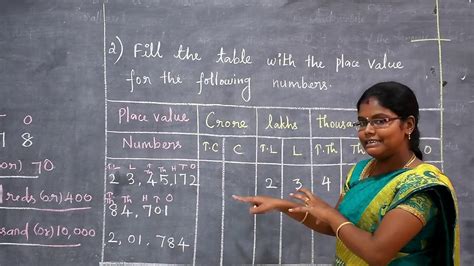 2) Fill the table with the place value
for the following numbers.
Place value Crore lakhs thousa
Numbers T.C C T.L L T.Th Th O
T.L L T Th H T O
2 3, 4 5, 1 7 2 2 3 4
T Th Th H T O
8 4, 7 0 1
2, 0 1, 7 8 4
0
7 8
(or) 70
reds (or) 400
sand (or) 10,000